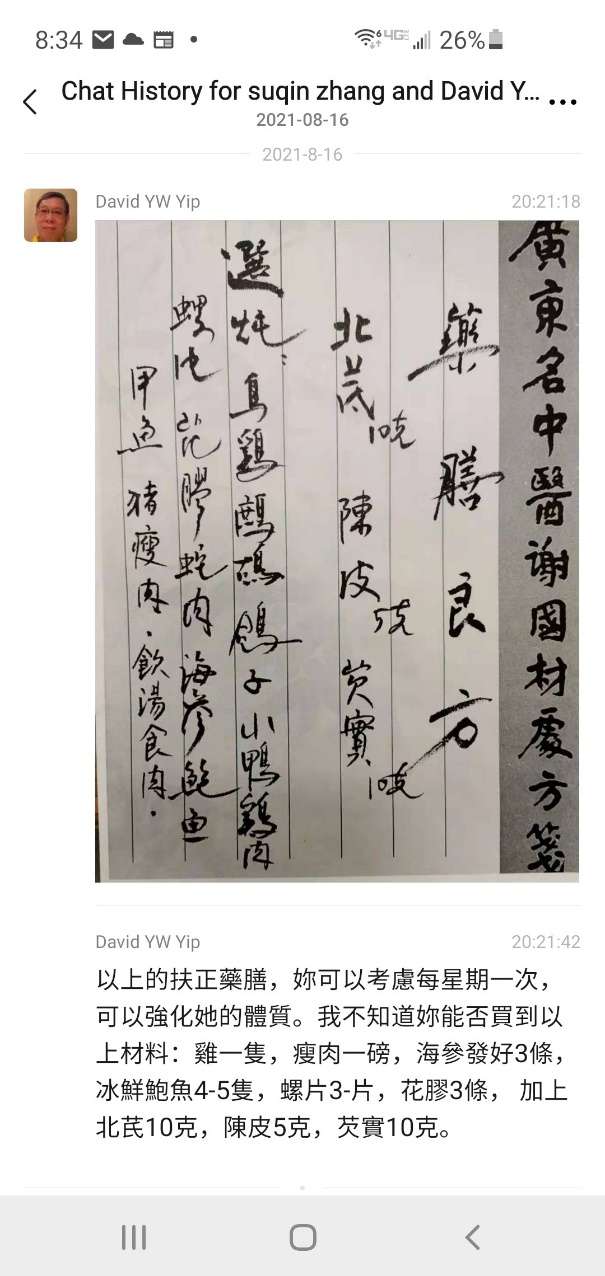 8:34
4G 26%
Chat History for suqin zhang and David Y...
2021-08-16
2021-8-16
David YW Yip 20:21:18
廣東名中醫谢國材處方箋
藥膳良方
北芪10克 陳皮5克 芡實10克
選炖：烏鷄鷓鴣鴿子小鴨鷄肉
螺片花膠蛇肉海參鮑魚
甲魚猪瘦肉.飲湯食肉.
David YW Yip 20:21:42
以上的扶正藥膳，妳可以考慮每星期一次，
可以強化她的體質。我不知道妳能否買到以
上材料：雞一隻，瘦肉一磅，海參發好3條，
冰鮮鮑魚4-5隻，螺片3-片，花膠3條， 加上
北芪10克，陳皮5克，芡實10克。